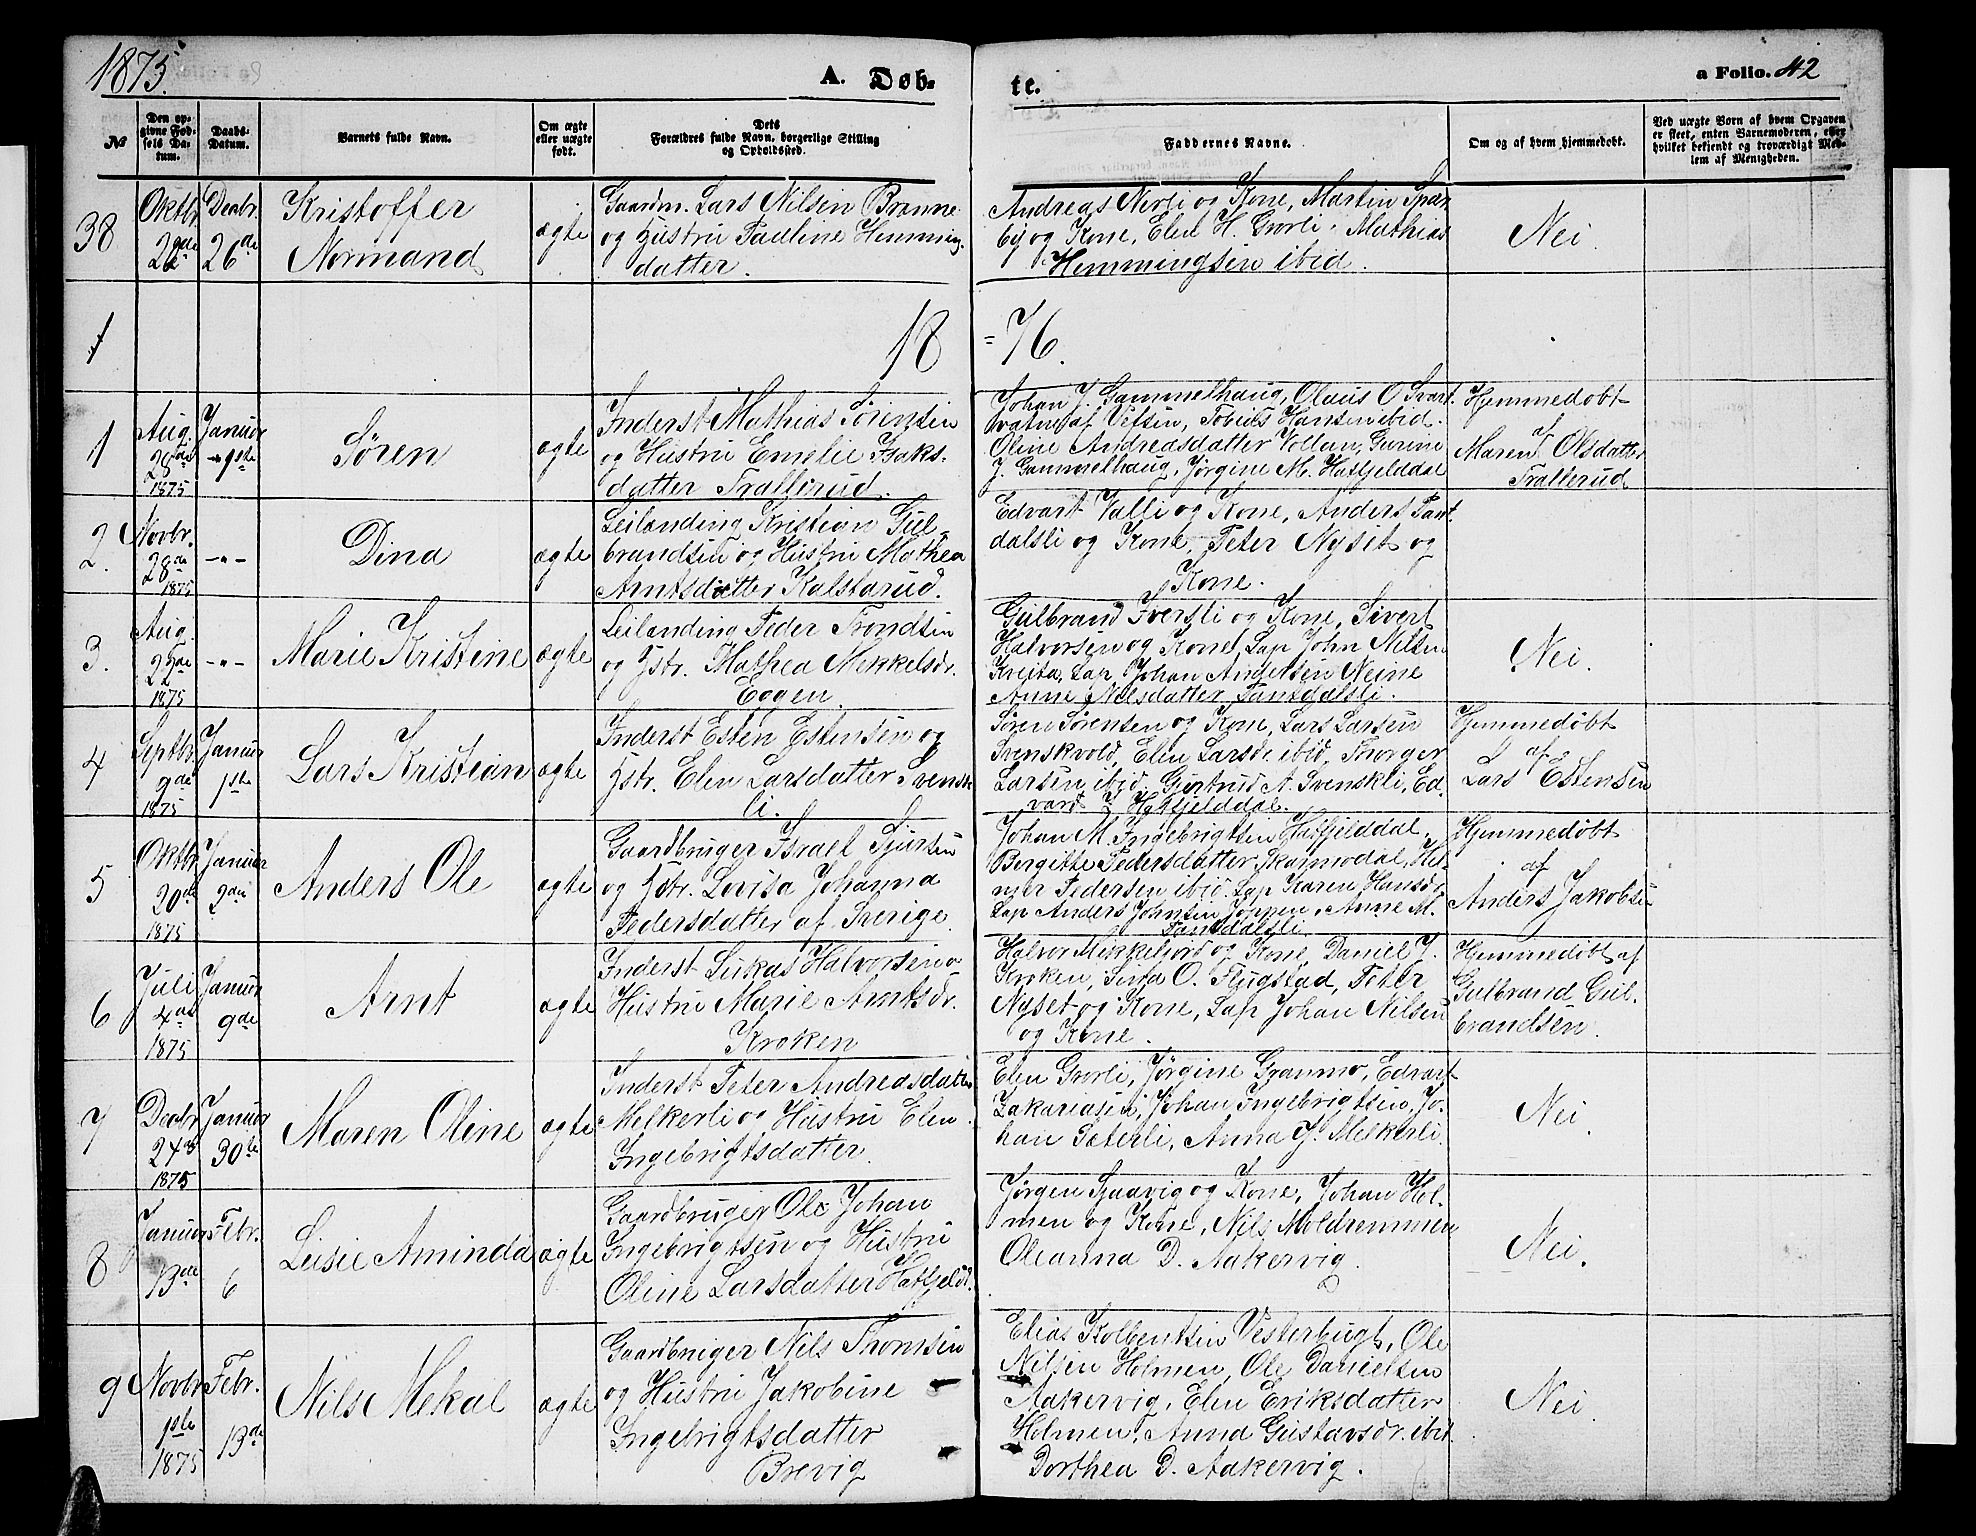 1875.
A. Døb=
te.
a Folio. 42
No
Den op-
givne Fød-
sels Da-
tum.
Daabs-
Datum.
Barnets fulde Navn.
Om ægte
eller uægte
født.
Dets
Forældres fulde Navn, borgerlige Stilling
og Opholdssted.
Faddernes Navne.
Om og af hvem hjemmedøbt.
Ved uægte Børn af hvem Opgaven
er skeet, enten Barnemoderen, eller
hvilket bekjendt og troværdigt Med-
lem af Menigheden.
38
Oktbr.
22de
Decbr.
26de
Kristoffer
Normand
ægte
Gaardm. Lars Nilsen Brønne
og Hustru Pauline Hemming
datter.
Andreas Nerli og Kone, Martin
og Kone, Elen H. Grøli, Mathias
Hemmingsen ibid.
Nei.
1
18
=76.
1
Aug.
28de
1875
Januar
1ste
Søren
ægte
Inderst Mathias Sørensen
og Hustru Emelie Isaks-
datter Trallerud.
Johan J. Gammelhaug, Olaus O Svart
vatn af Vefsen, Tobias Hansen ibid.
Oline Andreasdatter Vollan, Gurine
J. Gammelhaug, Jørgine M. Hatfjelddal
Hjemmedøbt
af
Maren Olsdatter
Trallerud
2.
Novbr.
28de
1875
-"-
Dina
ægte
Leilænding Kristian Gul-
brandsen og Hustru Mathea
Arntsdatter Kalstarud.
Edvart Valli og Kone, Anders Tant
dalsli og Kone, Peter Nyset og
Kone.
3.
Aug.
22de
1875
-"-
Marie Kristine
ægte
Leilænding Peder Trondsen
og Hstr. Mathea Mikkelsdr.
Eggen
Gulbrand Iversli og Kone, Sivert
Halvorsen og Kone, Lap John Nilsen
Kreita, Lap Johan Andersen Neine
Anne Nilsdatter Tantdalsli.
Nei.
4
Septbr.
9de
1875
Januar
1ste
Lars Kristian
ægte
Inderst Esten Estensen og
Hstr. Elen Larsdatter Svensk
li.
Søren Sørensen og Kone, Lars Larsen
Svenskvold, Elen Larsdr. ibid, Thorger
Larsen ibid. Gjertrud A. Svenskli, Ed-
vard Hatfjelddal.
Hjemmedøbt
af
Lars Estensen
5
Oktbr.
20de
1875
Januar
2den
Anders Ole
ægte
Gaardbruger Israel Sjursen
og Hstr. Lovisa Johanna
Pedersdatter af Sverige.
Johan M. Ingebrigtsen Hatfjelddal,
Bergitte Pedersdatter Skarmodal, Hel-
mer Pedersen ibid. Lap Karen Hansdr.
Lap Anders Johnsen Joppen, Anne M.
Tantdalsli.
Hjemmedøbt
af
Anders Jakobse-
6
Juli
4de
1875
Januar
9de
Arnt
ægte
Inderst Lukas Halvorsen o
Hustru Marie Arntsdr.
Kroken
Halvor Mikkeljord og Kone, Daniel J.
Kroken, O. Flugstad, Peter
Nyset og Kone, Lap Johan Nilsen
og Kone.
Hjemmedøbt af
Gulbrand Gul-
brandsen.
7
Decbr.
24de
1875
Januar
30te
Maren Oline
ægte
Inderst Peter Andreasdatter
Melkerli og Hustru Elen
Ingebrigtsdatter.
Elen Grøli, Jørgine Granmo, Edvart
Zakariasen, Johan Ingebrigtsen, Jo-
han Sæterli, Anna J. Melkerli.
Nei
8
Januar
13de
Febr.
6
Leisie Aminda
ægte
Gaardbruger Ole Johan
Ingebrigtsen og Hustru
Oline Larsdatter Hatfjeldd.
Jørgen Sjaavig og Kone, Johan Hol-
men og Kone, Nils Moldremmen
Oleanna D. Aakervig.
Nei.
9
Novbr.
1ste
1875
Febr.
13de
Nils Mekal
ægte
Gaardbruger Nils Thomsen
og Hustru Jakobine
Ingebrigtsdatter
Brevig
Elias Kolbentsen Vesterbugt, Ole
Nilsen Holmen, Ole Danielsen
Aakervig, Elen Eriksdatter
Holmen, Anna Gustavsdr. ibid.
Dorthea D. Aakervig.
Nei